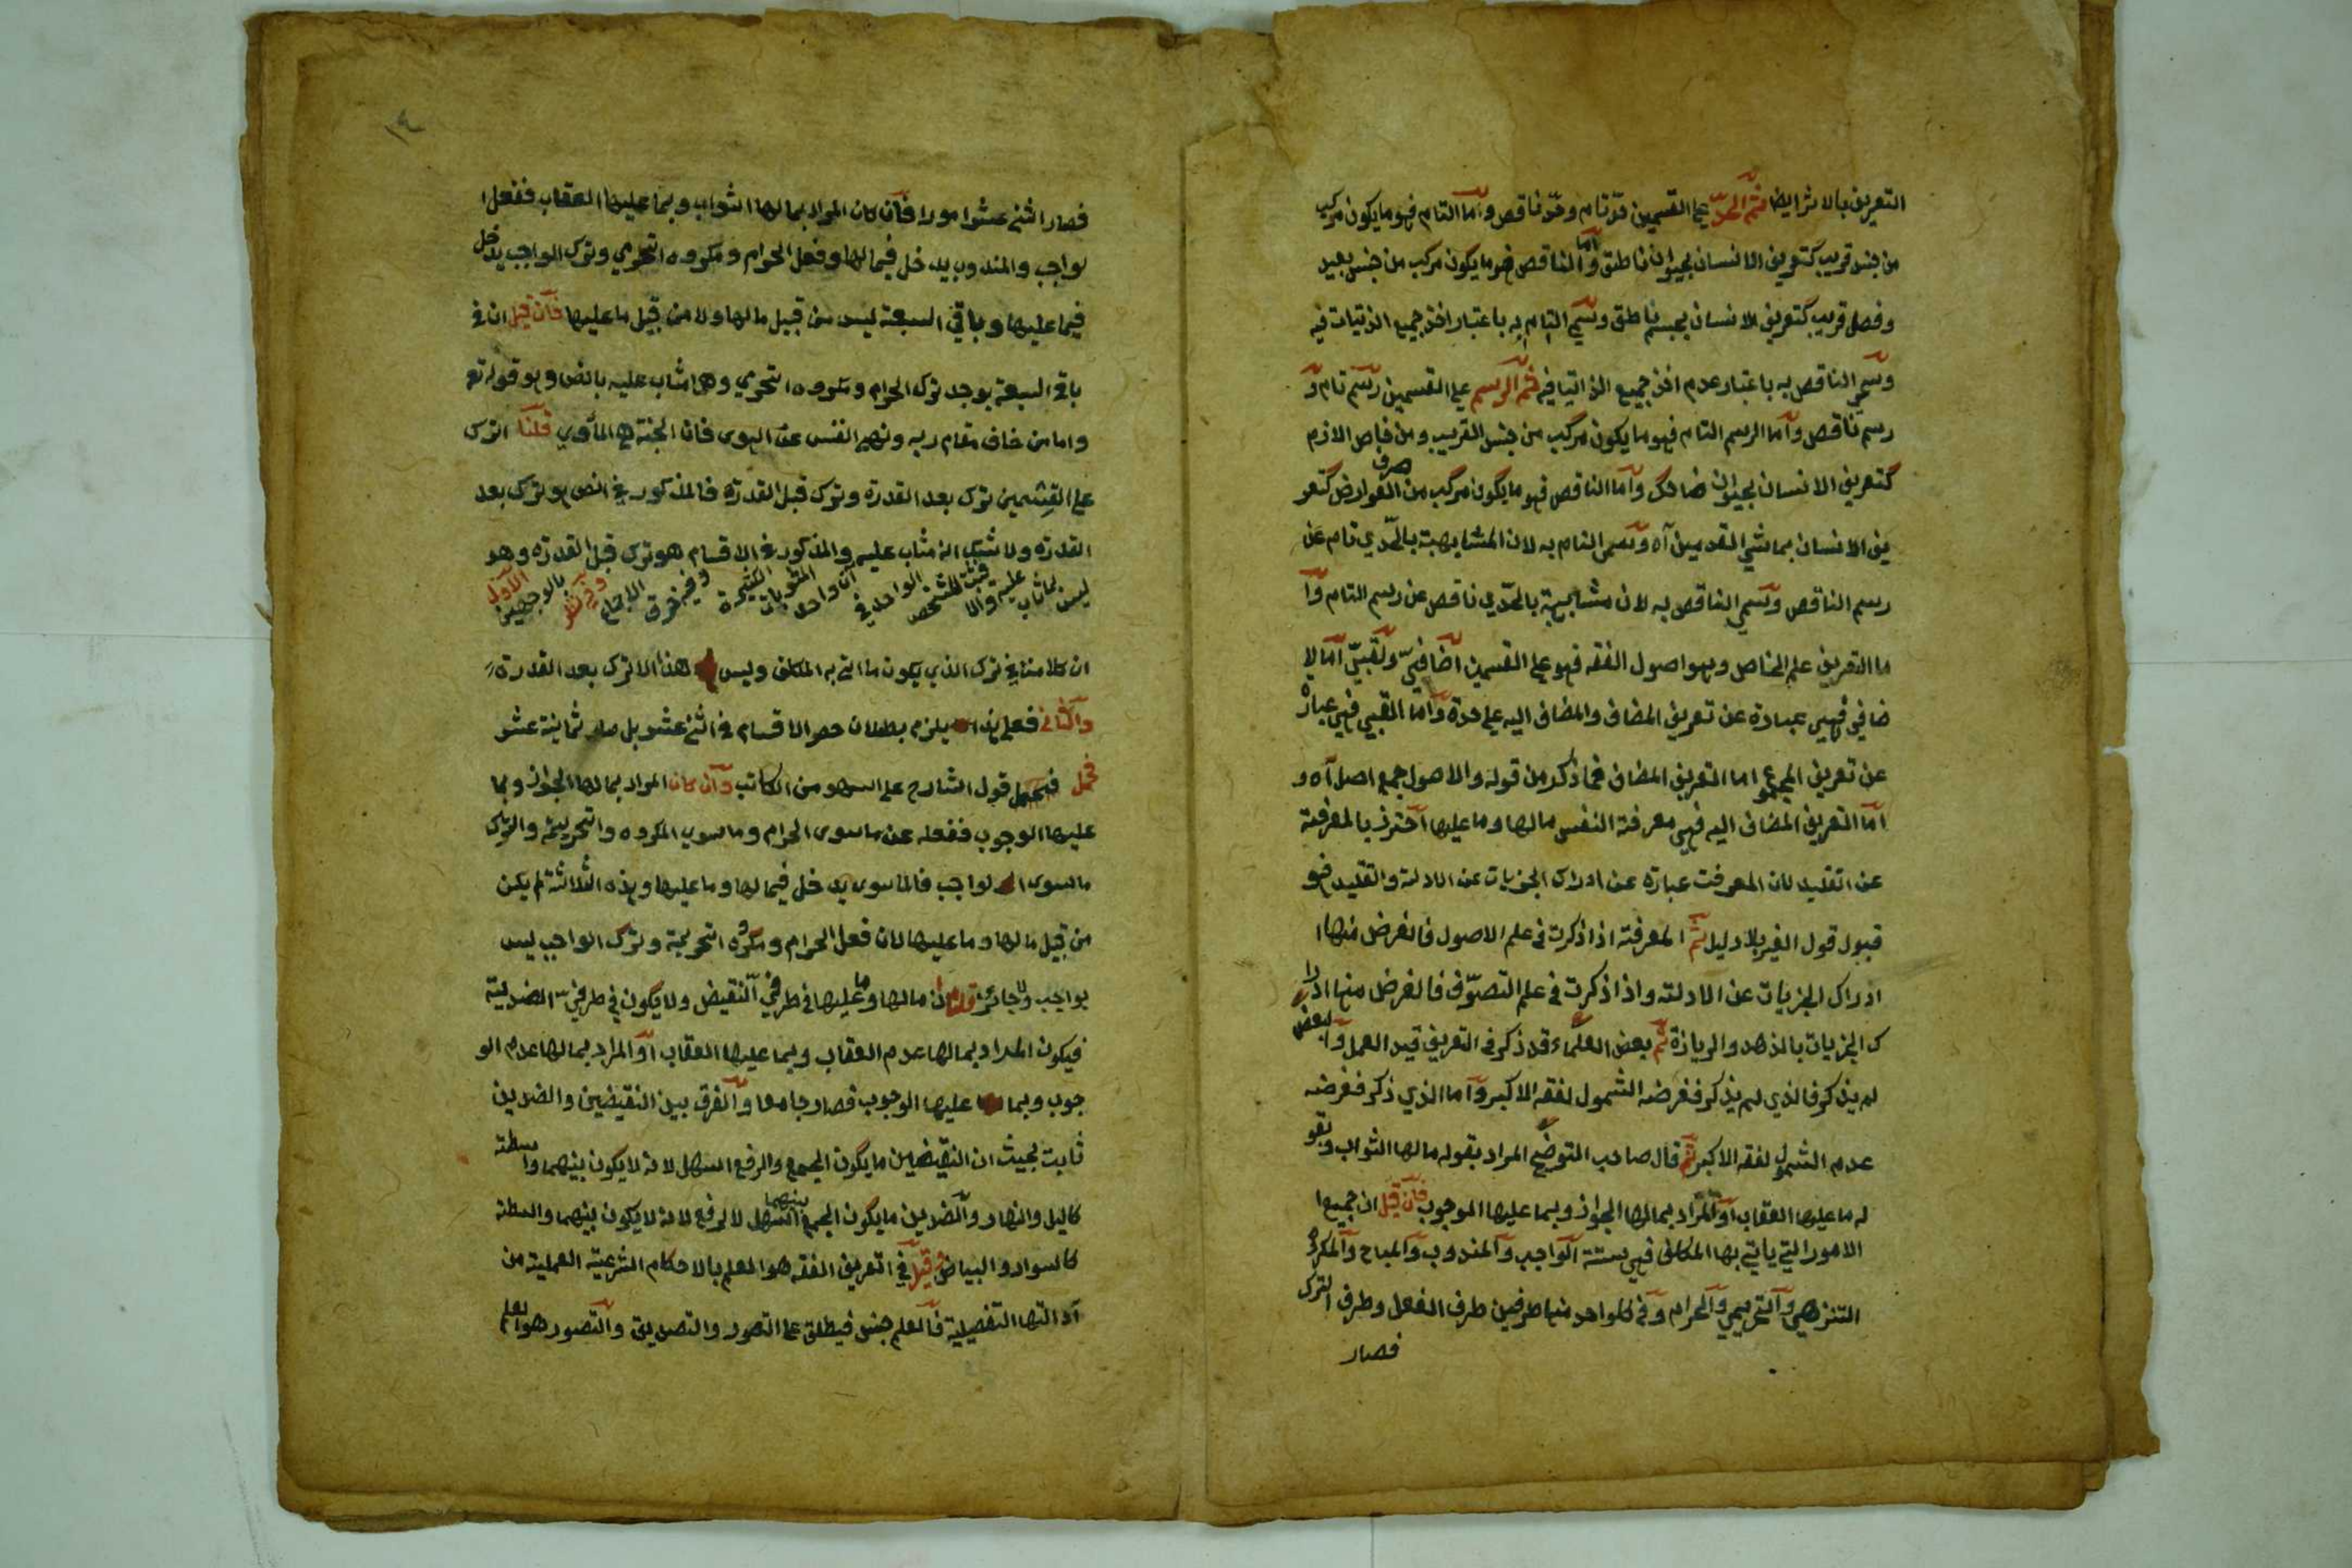 التعريف بالاثر ايضا ثم الحد على القسمين حد تام وحد ناقص واما التام فهو ما يكون مركب
من جنس قريب كتعريف الانسان بحيوان ناطق واما الناقص فهو ما يكون مركب من جنس بعيد
وفصل قريب كتعريف الانسان بجسم ناطق وسمي التام به باعتبار اخذ جميع الذتيات فيه
وسمي الناقص به باعتبار عدم اخذ جميع الذاتيا فيه ثم الرسم على القسمين رسم تام و
رسم ناقص واما الرسم التام فهو ما يكون مركب من جنس القريب ومن خاص الازم
كتعريف الانسان بحيوان ضاحك واما الناقص فهو ما يكون مركب من صرف العوارض كتعر
يف الانسان بماشي القدمين آه وسمي التام به لان المشابهة بالحدي تام عن
رسم الناقص وسمي الناقص به لان مشابهية بالحدي ناقص عن رسم التام وا
ما التعريف علم الخاص وهو اصول الفقه فهو على القسمين اضافي ولقبي اما لا
ضافي فهي عبارة عن تعريف المضاف والمضاف اليه على حدة واما القبي فهي عبارة
عن تعريف المجموع اما التعريف المضاف فما ذكر من قوله والاصول جمع اصل آه و
اما التعريف المضاف اليه فهي معرفة النفس مالها وما عليها احترز بالمعرفة
عن اتقليد لان المعرفت عبارة عن ادراك الجزيات عن الادلة والتقليد فهو
قبول قول الغير بلا دليل ثم المعرفة اذا ذكرت في علم الاصول فالغرض منها
ادراك الجزيات عن الادلة واذا ذكرت في علم التصوف فالغرض منها ادرا
ك الجزيات بالذهد والريازة ثم بعض العلماء قد ذكر في التعريف قيد العمل والبعض
لم يذكر فالذي لم يذكر فغرضه الشمول لفقه الاكبر واما الذي ذكر فغرضه
عدم الشمول لفقه الاكبر ثم قال صاحب التوضيح المراد بقوله مالها الثواب وبقو
له ما عليها العقاب او المراد بمالها الجواز وبما عليها الوجوب فان قيل ان جميع ا
الامور التي ياتي بها المكلف فهي ستة الواجب والمندوب والمباح والمكروه
التنزهي والتحريمي والحرام وفي كلواحد منها طرفين طرف الفعل وطرف الترك
فصار
١٤
فصار اثنى عشر امورا فان كان المراد بمالها الثواب وبما عليها العقاب ففعل ا
لواجب والمندوب يدخل فيمالها وفعل الحرام ومكروه التحرمي وترك الواجب يدخل
فيما عليها وباقي السبعة ليس من قبيل مالها ولا من قبيل ما عليها فان قيل ان في
باقي السبعة يوجد ترك الحرام ومكروه التحرمي وهما مثاب عليه بالنص وهو قوله تع
واما من خاف مقام ربه ونهى النفس عن الهوى فان الجنة هي المأوي قلنا الترك
على القسمين ترك بعد القدرة وترك قبل القدرة فالمذكور في النص هو ترك بعد
القدرة ولا شك انه مثاب عليه والمذكور في الاقسام هو ترك قبل القدرة وهو
ليس بمثاب عليه والا فيثبت للشخص الواحد في آن واحد المثوبات الكثيرة وفيه خرق الاجماع وفيه نظر بالوجهين الاول
ان كلامنا في ترك الذي يكون ما اتى به المكلف وليس هذا الا ترك بعد القدرة
والثاني فعلى هذا يلزم بطلان حصر الاقسام في اثنى عشر بل صار ثمانية عشر
فيحمل قول الشارح على السهو من الكاتب وان كان المراد بمالها الجواز وبما
عليها الوجوب ففعله عن ما سوى الحرام وما سوي المكروه والتحريمة والترك
ما سوى الواجب فالما سوى يدخل فيما لها وما عليها وهذه الثلاثة لم يكن
من قبيل مالها وما عليها لان فعل الحرام ومكروه التحريمة وترك الواجب ليس
بواجب ولا جائز قلنا ان مالها وما عليها في طرفي النقيض ولا يكون في طرفي الضدية
فيكون المراد بمالها عدم العقاب وبما عليها العقاب او المراد بمالها عدم الو
جوب وبما عليها الوجوب فصار جامعا والفرق بين النقيضين والضدين
ثابت بحيث ان النقيضين ما يكون الجمع والرفع السهل لانه لا يكون بينهما واسطة
كاليل والنهار والضدين ما يكون الجمع بينهما السهل لا لرفع لانه لا يكون بينهما واسطة
كالسواد والبياض قيل في تعريف الفقه هو العلم بالاحكام الشرعية العملية من
ادالتها التفصيلية فالعلم جنس فيطلق على التصور والتصديق والتصور هو العلم